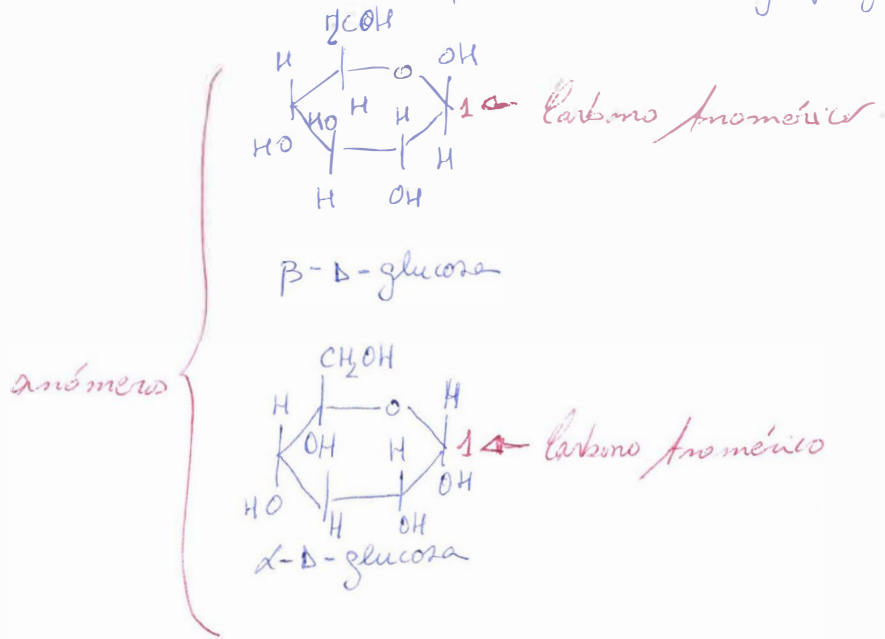 H₂COH
H O OH
H H 1 ← Carbono Anomérico
HO HO H
H OH
β-D-glucosa
anómeros
CH₂OH
H O H
OH H 1 ← Carbono Anomérico
HO H OH OH
α-D-glucosa